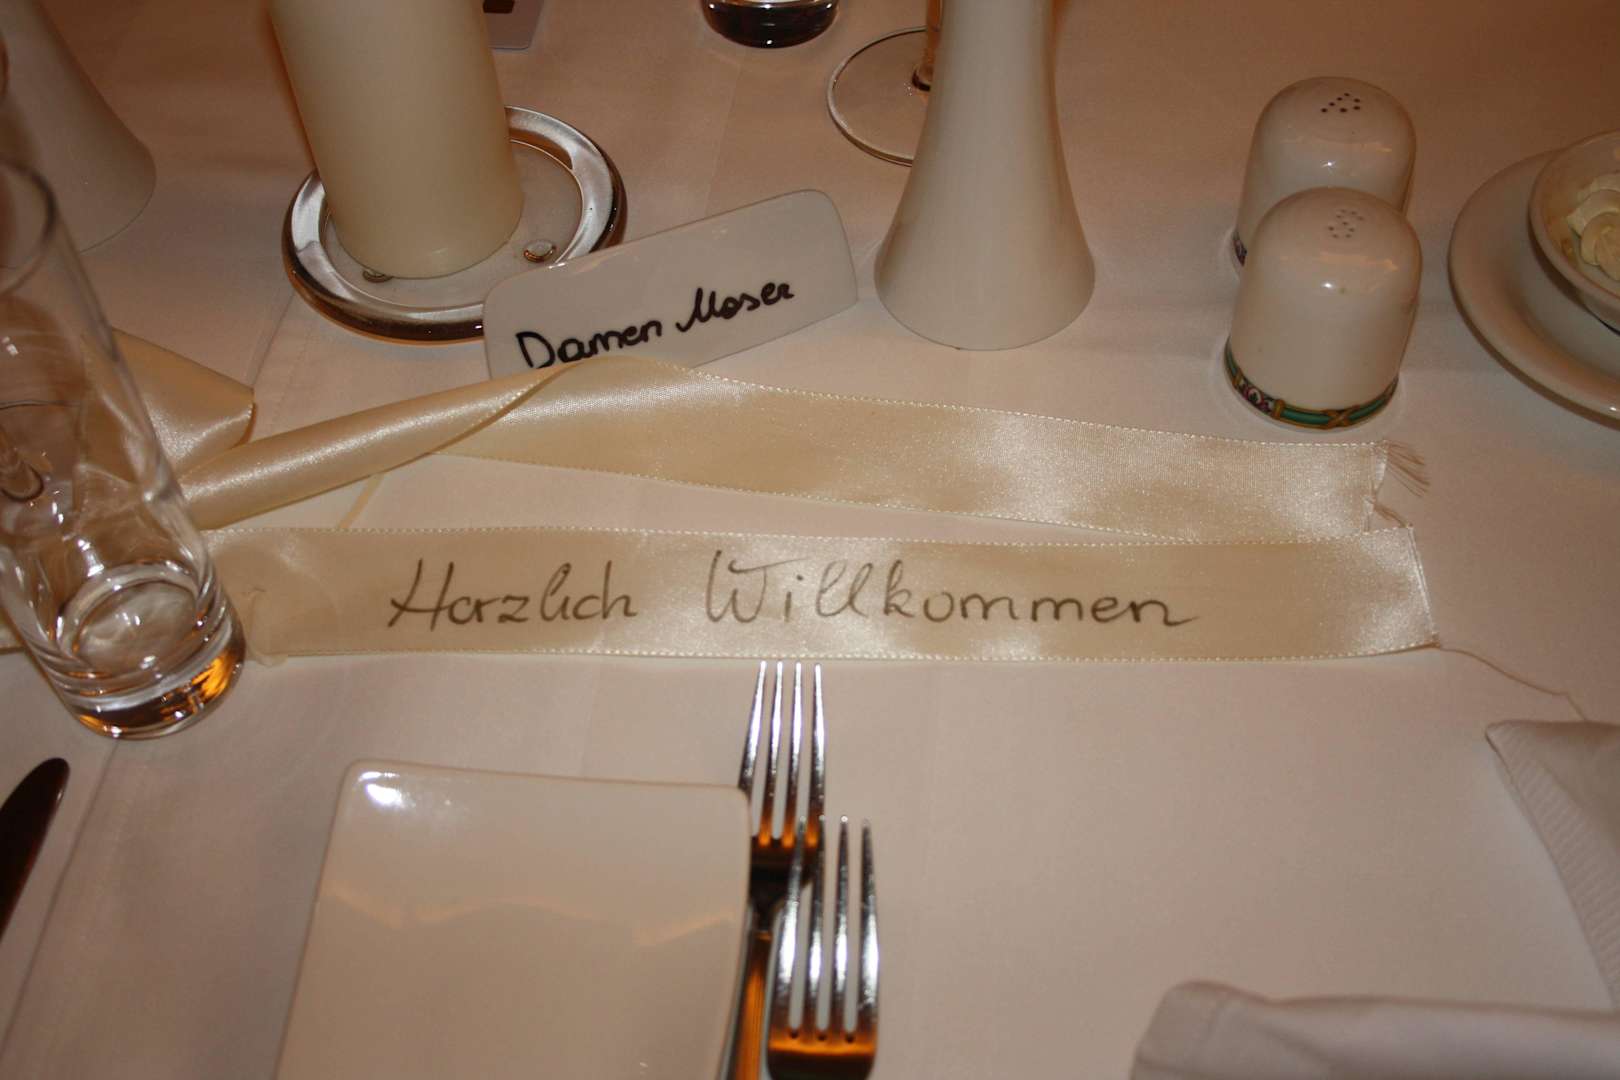 Damen Moser
Herzlich Willkommen